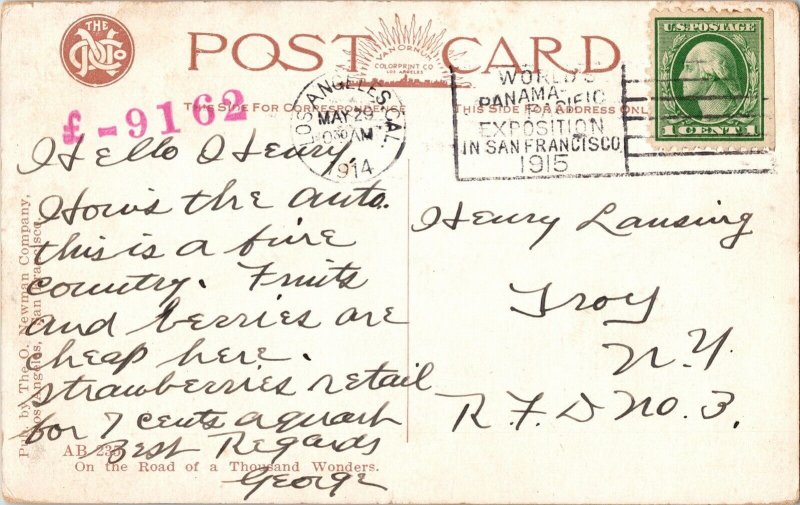 THE
N Co
POST CARD
VAN ORNUM
COLORPRINT CO
LOS ANGELES
THIS SIDE FOR CORRESPONDENCE
THIS SIDE FOR ADDRESS ONLY
£-9162
LOS ANGELES, CAL
MAY 29
AM
1914
WORLD'S
PANAMA-PACIFIC
EXPOSITION
IN SAN FRANCISCO
1915
U.S. POSTAGE
1 CENT 1
Hello Henry,
Hows the auto.
this is a fine
country. Fruits
and berries are
cheap here.
strawberries retail
for 7 cents a quart
Best Regards
George
Henry Lansing
Troy
N.Y.
R.F.D No. 3.
Pub. by The O. Newman Company,
Los Angeles, San Francisco.
AB 235
On the Road of a Thousand Wonders.